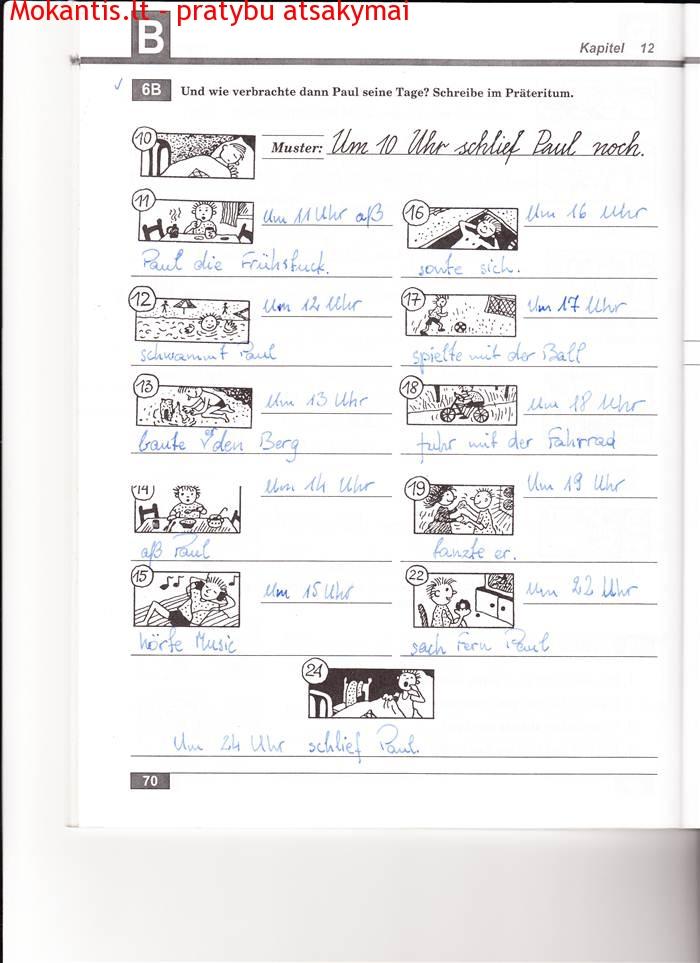 Mokantis.lt - pratybu atsakymai
B
Kapitel 12
6B Und wie verbrachte dann Paul seine Tage? Schreibe im Präteritum.
10
Muster: Um 10 Uhr schlief Paul noch.
11
Um 11 Uhr aß
Paul die Frühstuck.
12
Um 12 Uhr
schwammt Paul
13
Um 13 Uhr
baute den Berg
14
Um 14 Uhr
aß Paul
15
Um 15 Uhr
hörte Music
16
Um 16 Uhr
sonte sich.
17
Um 17 Uhr
spielte mit der Ball
18
Um 18 Uhr
fuhr mit der Fahrrad
19
Um 19 Uhr
tanzte er.
22
Um 22 Uhr
sach Fern Paul
24
Um 24 Uhr schlief Paul.
70